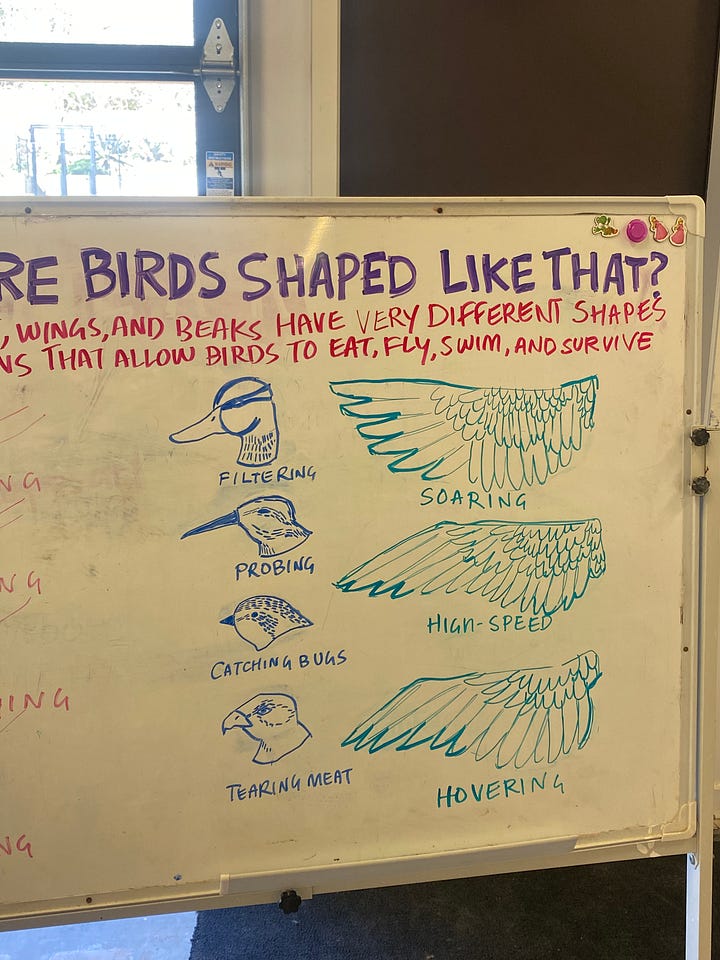 RE BIRDS SHAPED LIKE THAT?
, WINGS, AND BEAKS HAVE VERY DIFFERENT SHAPES
NS THAT ALLOW BIRDS TO EAT, FLY, SWIM, AND SURVIVE
FILTERING
SOARING
NG
PROBING
NG
HIGH-SPEED
CATCHING BUGS
ING
TEARING MEAT
HOVERING
NG